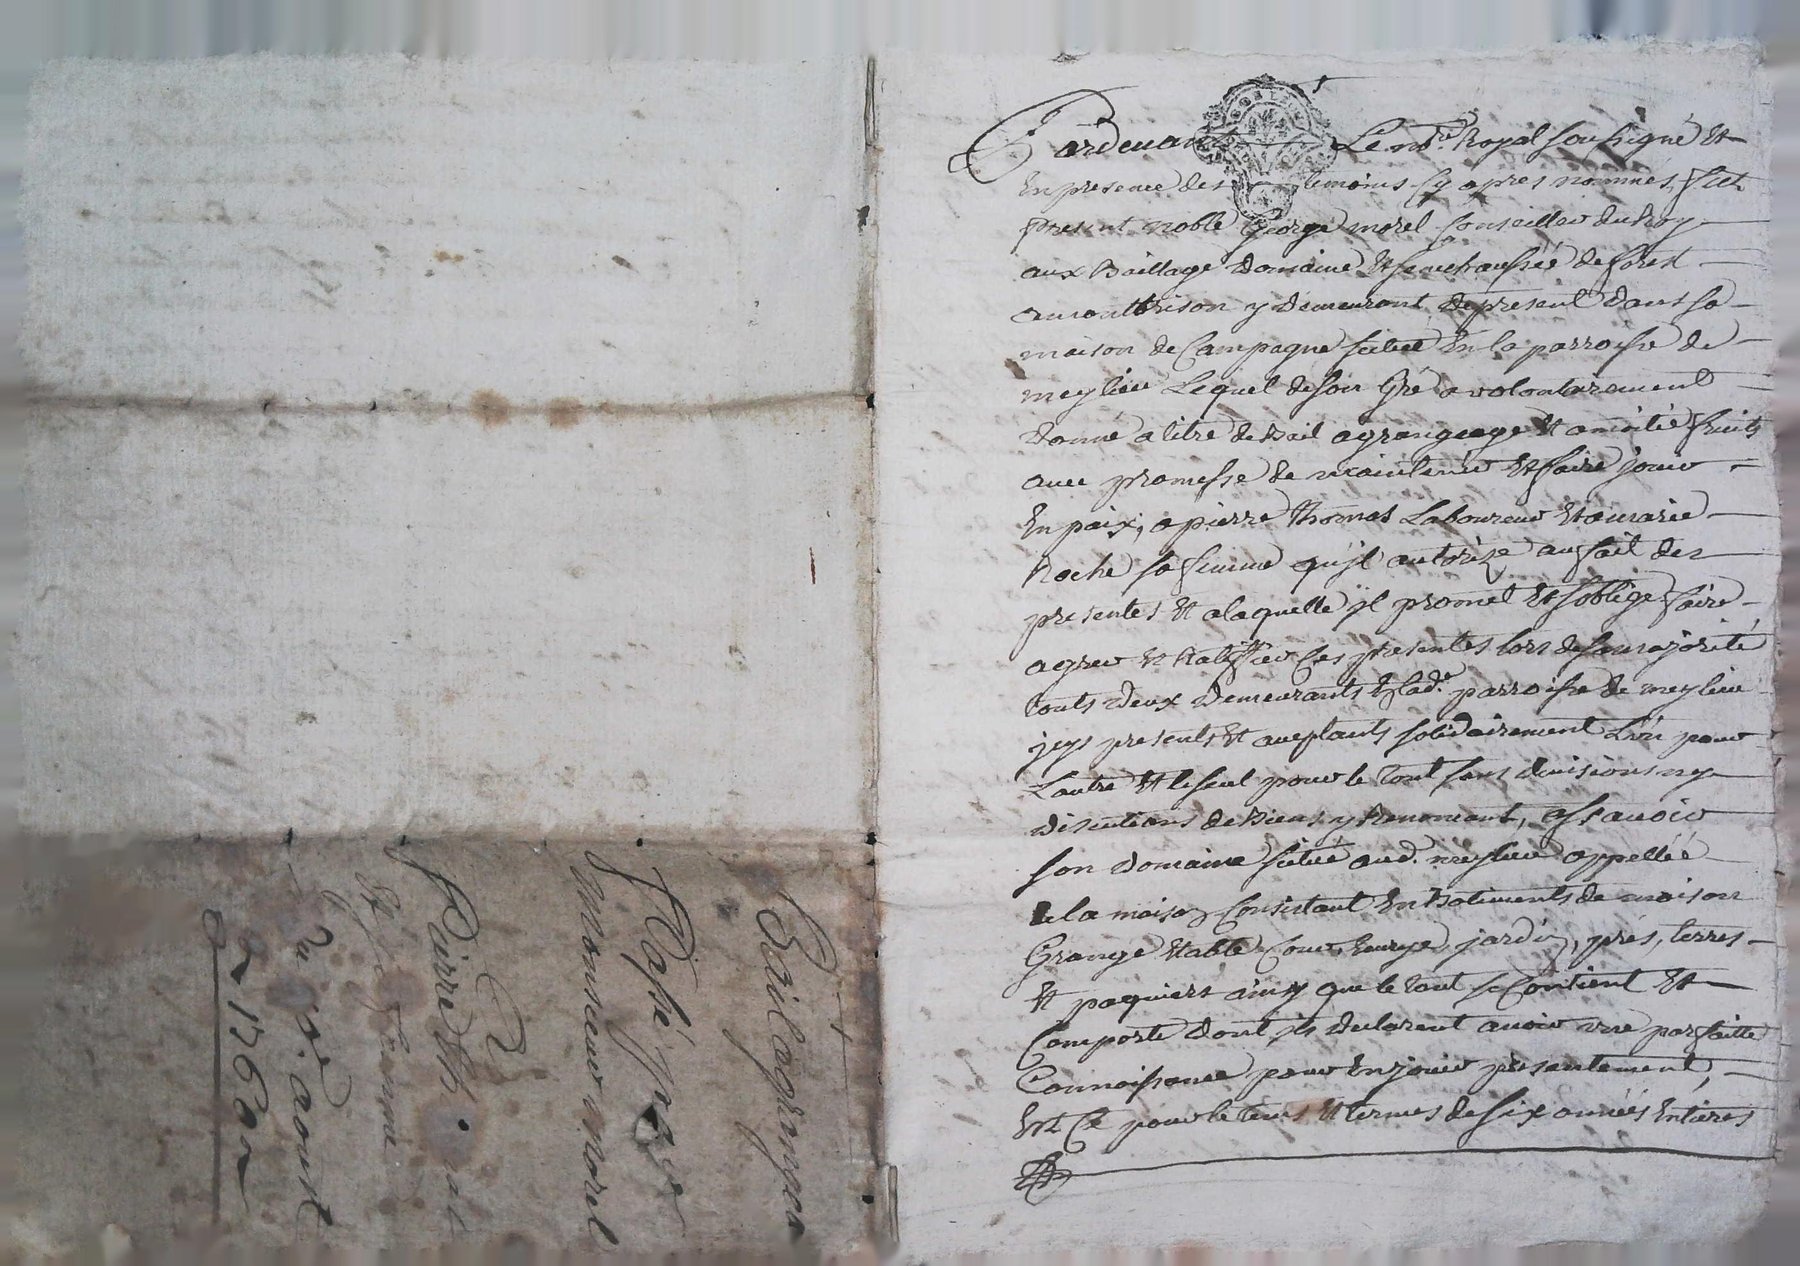 Pardevant Le no.re Royal soussigné Et
En presence des temoins Cy apres nommés, fut
present noble George morel Conseiller du Roy
aux Baillage Domaine Et senechaussée de forest
a montbrison y demeurant de present dans sa
maison de Campagne scitué En la parroisse de
meylieu Lequel de son Gré a volontairement
donné a titre de bail a grangeage Et a moitié fruits
avec promesse de maintenir Et faire jouir
En paix, a pierre thomas Laboureur Et a marie
Roche sa femme qu'jl autorize au fait des
presentes Et a laquelle jl promet Et s'oblige faire
agreer Et Ratiffier Ces presentes lors de sa majorité
touts deux demeurants En lad.e parroisse de meylieu
jcys presents Et aceptants solidairement L'un pour
L'autre Et le seul pour le tout sans divisions ny
discutions de biens y Renoncant, asçavoir
son domaine scitué aud. meylieu appellée
de la maison Consistant En batiments de maison
Grange Etable Cour Eurye, jardin, prés, terres
Et paquiers ainsy que le tout se Contient Et
Comporte dont jls declarent avoir une parfaitte
Connoissance pour En jouir presentement,
Et Ce pour le tems Et termes de six années Entieres
Bail a grangeage
Passé par
Monsieur morel
A
Pierre th mas
Et sa femme
Du 2e aoust
1760